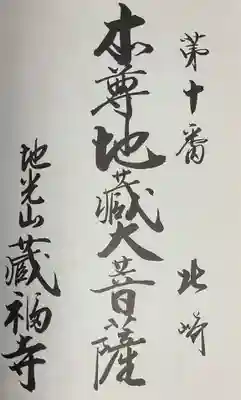 第十番　北崎
本尊地蔵大菩薩
地光山蔵福寺